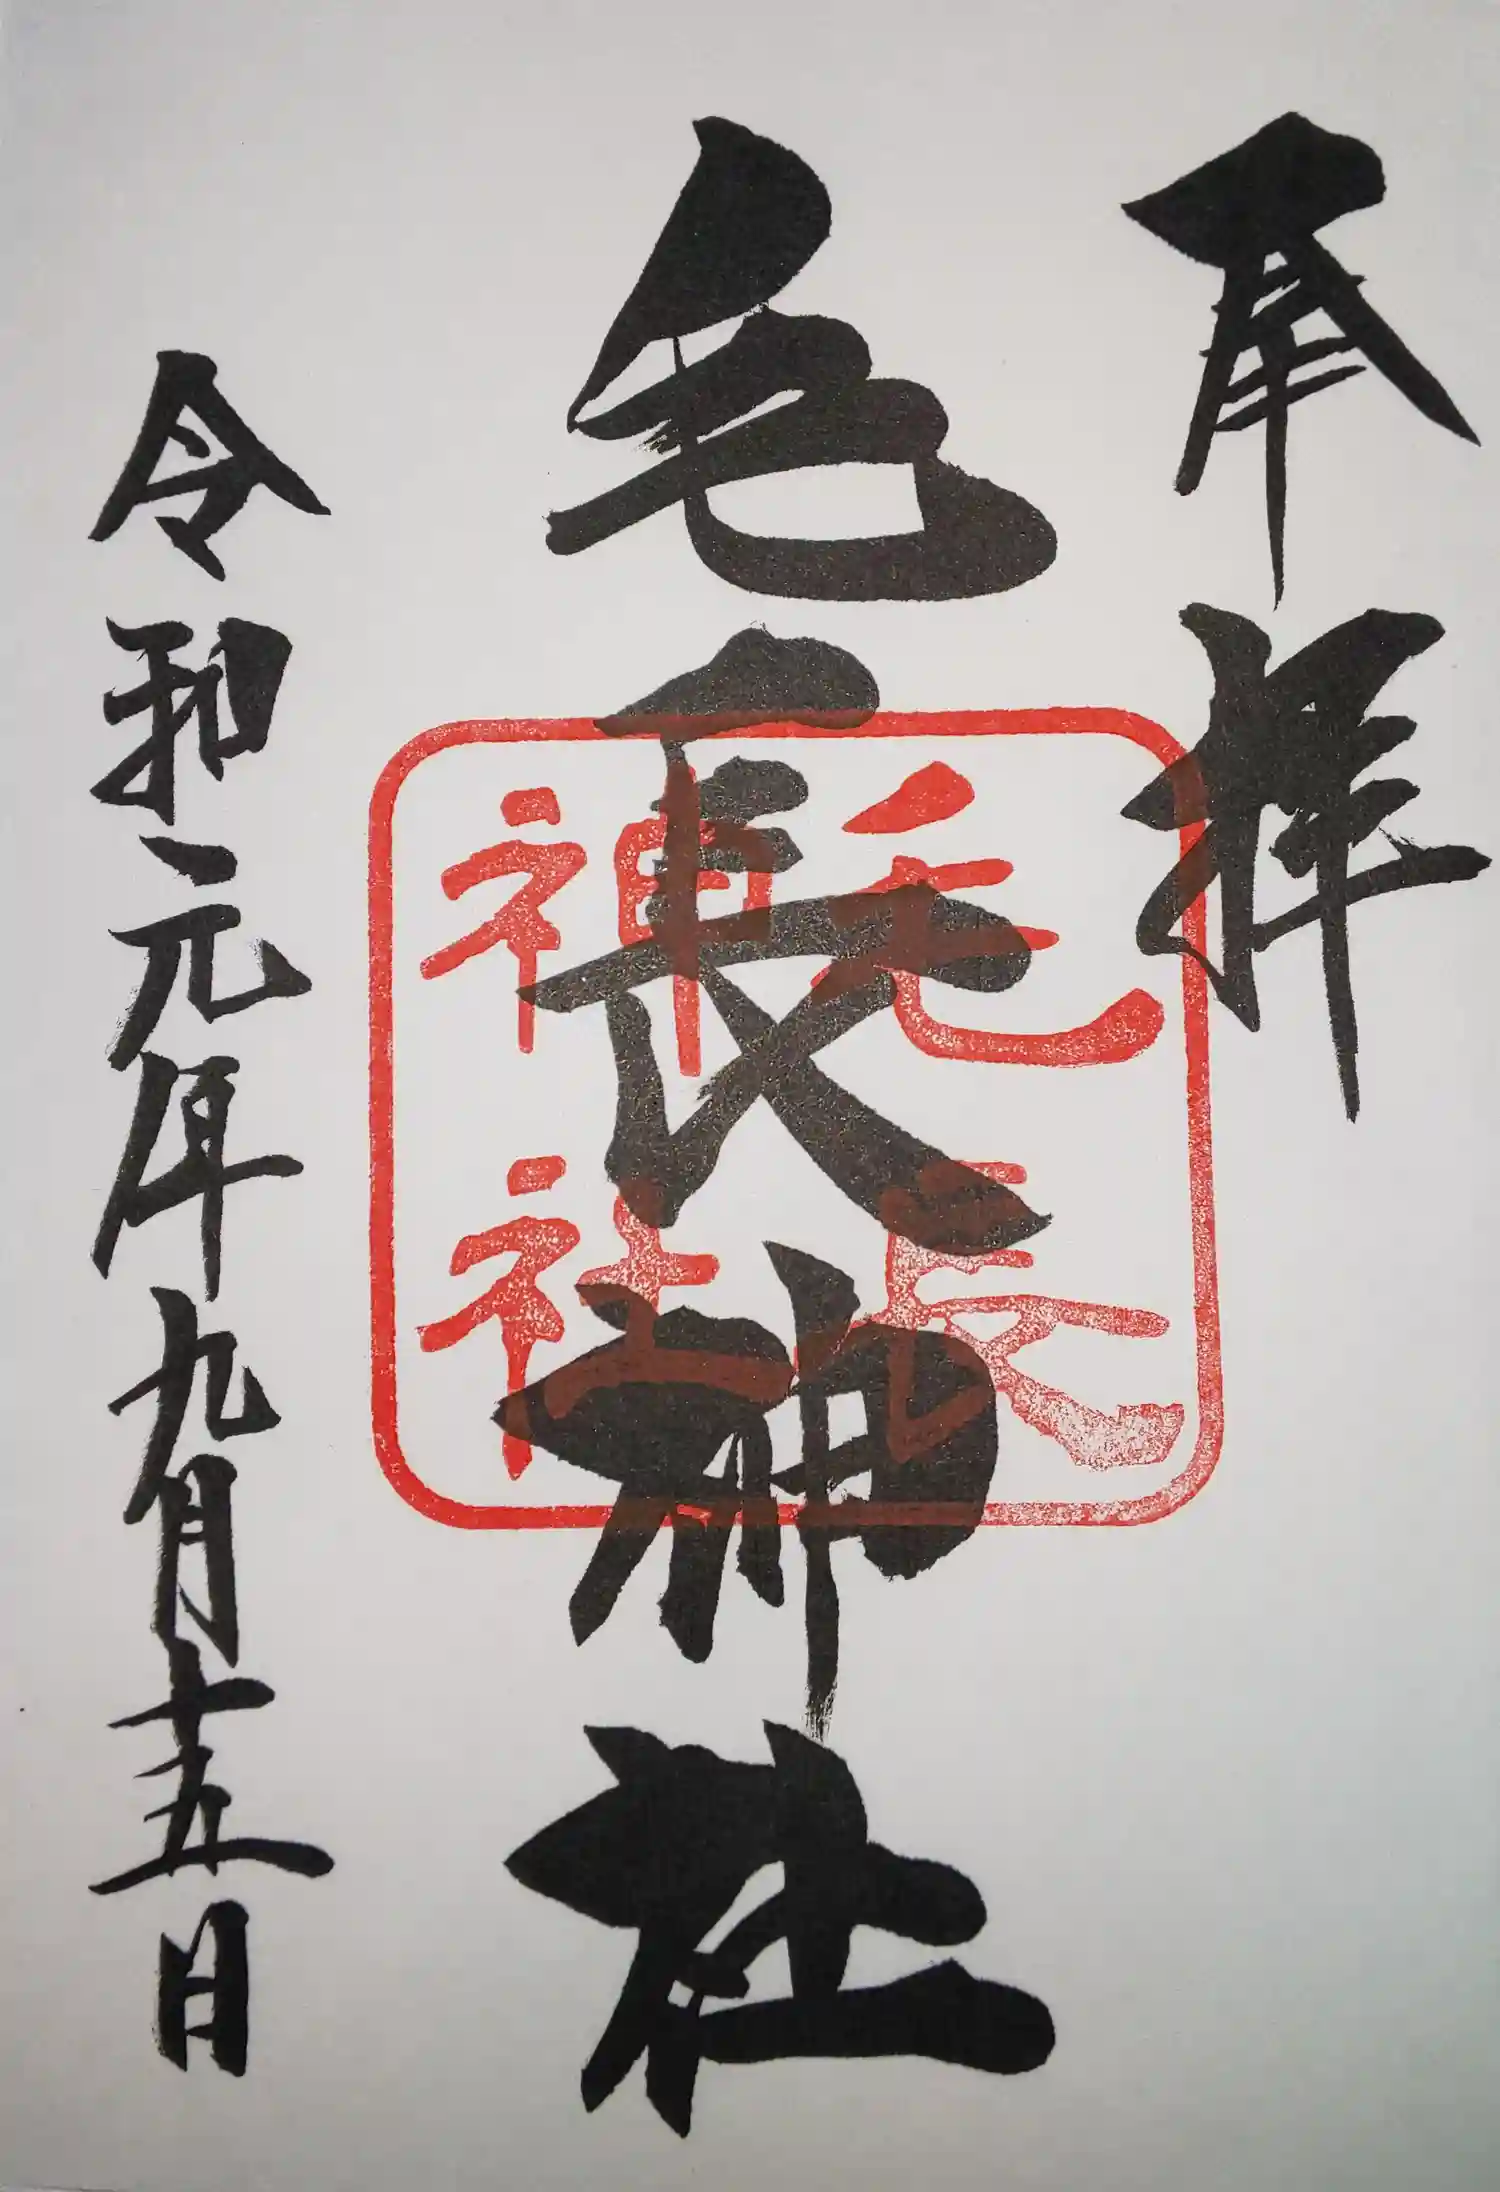 奉拝
毛長神社
毛長
神社
令和元年九月十五日